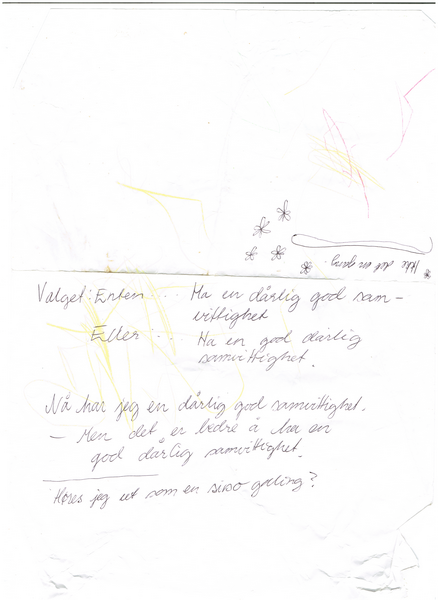 Ikke det en gang.
Valget: Enten ... Ha en dårlig god sam-
vittighet
Eller ... Ha en god dårlig
samvittighet.
Nå har jeg en dårlig god samvittighet.
- Men det er bedre å ha en
god dårlig samvittighet.
Høres jeg ut som en siko galing?